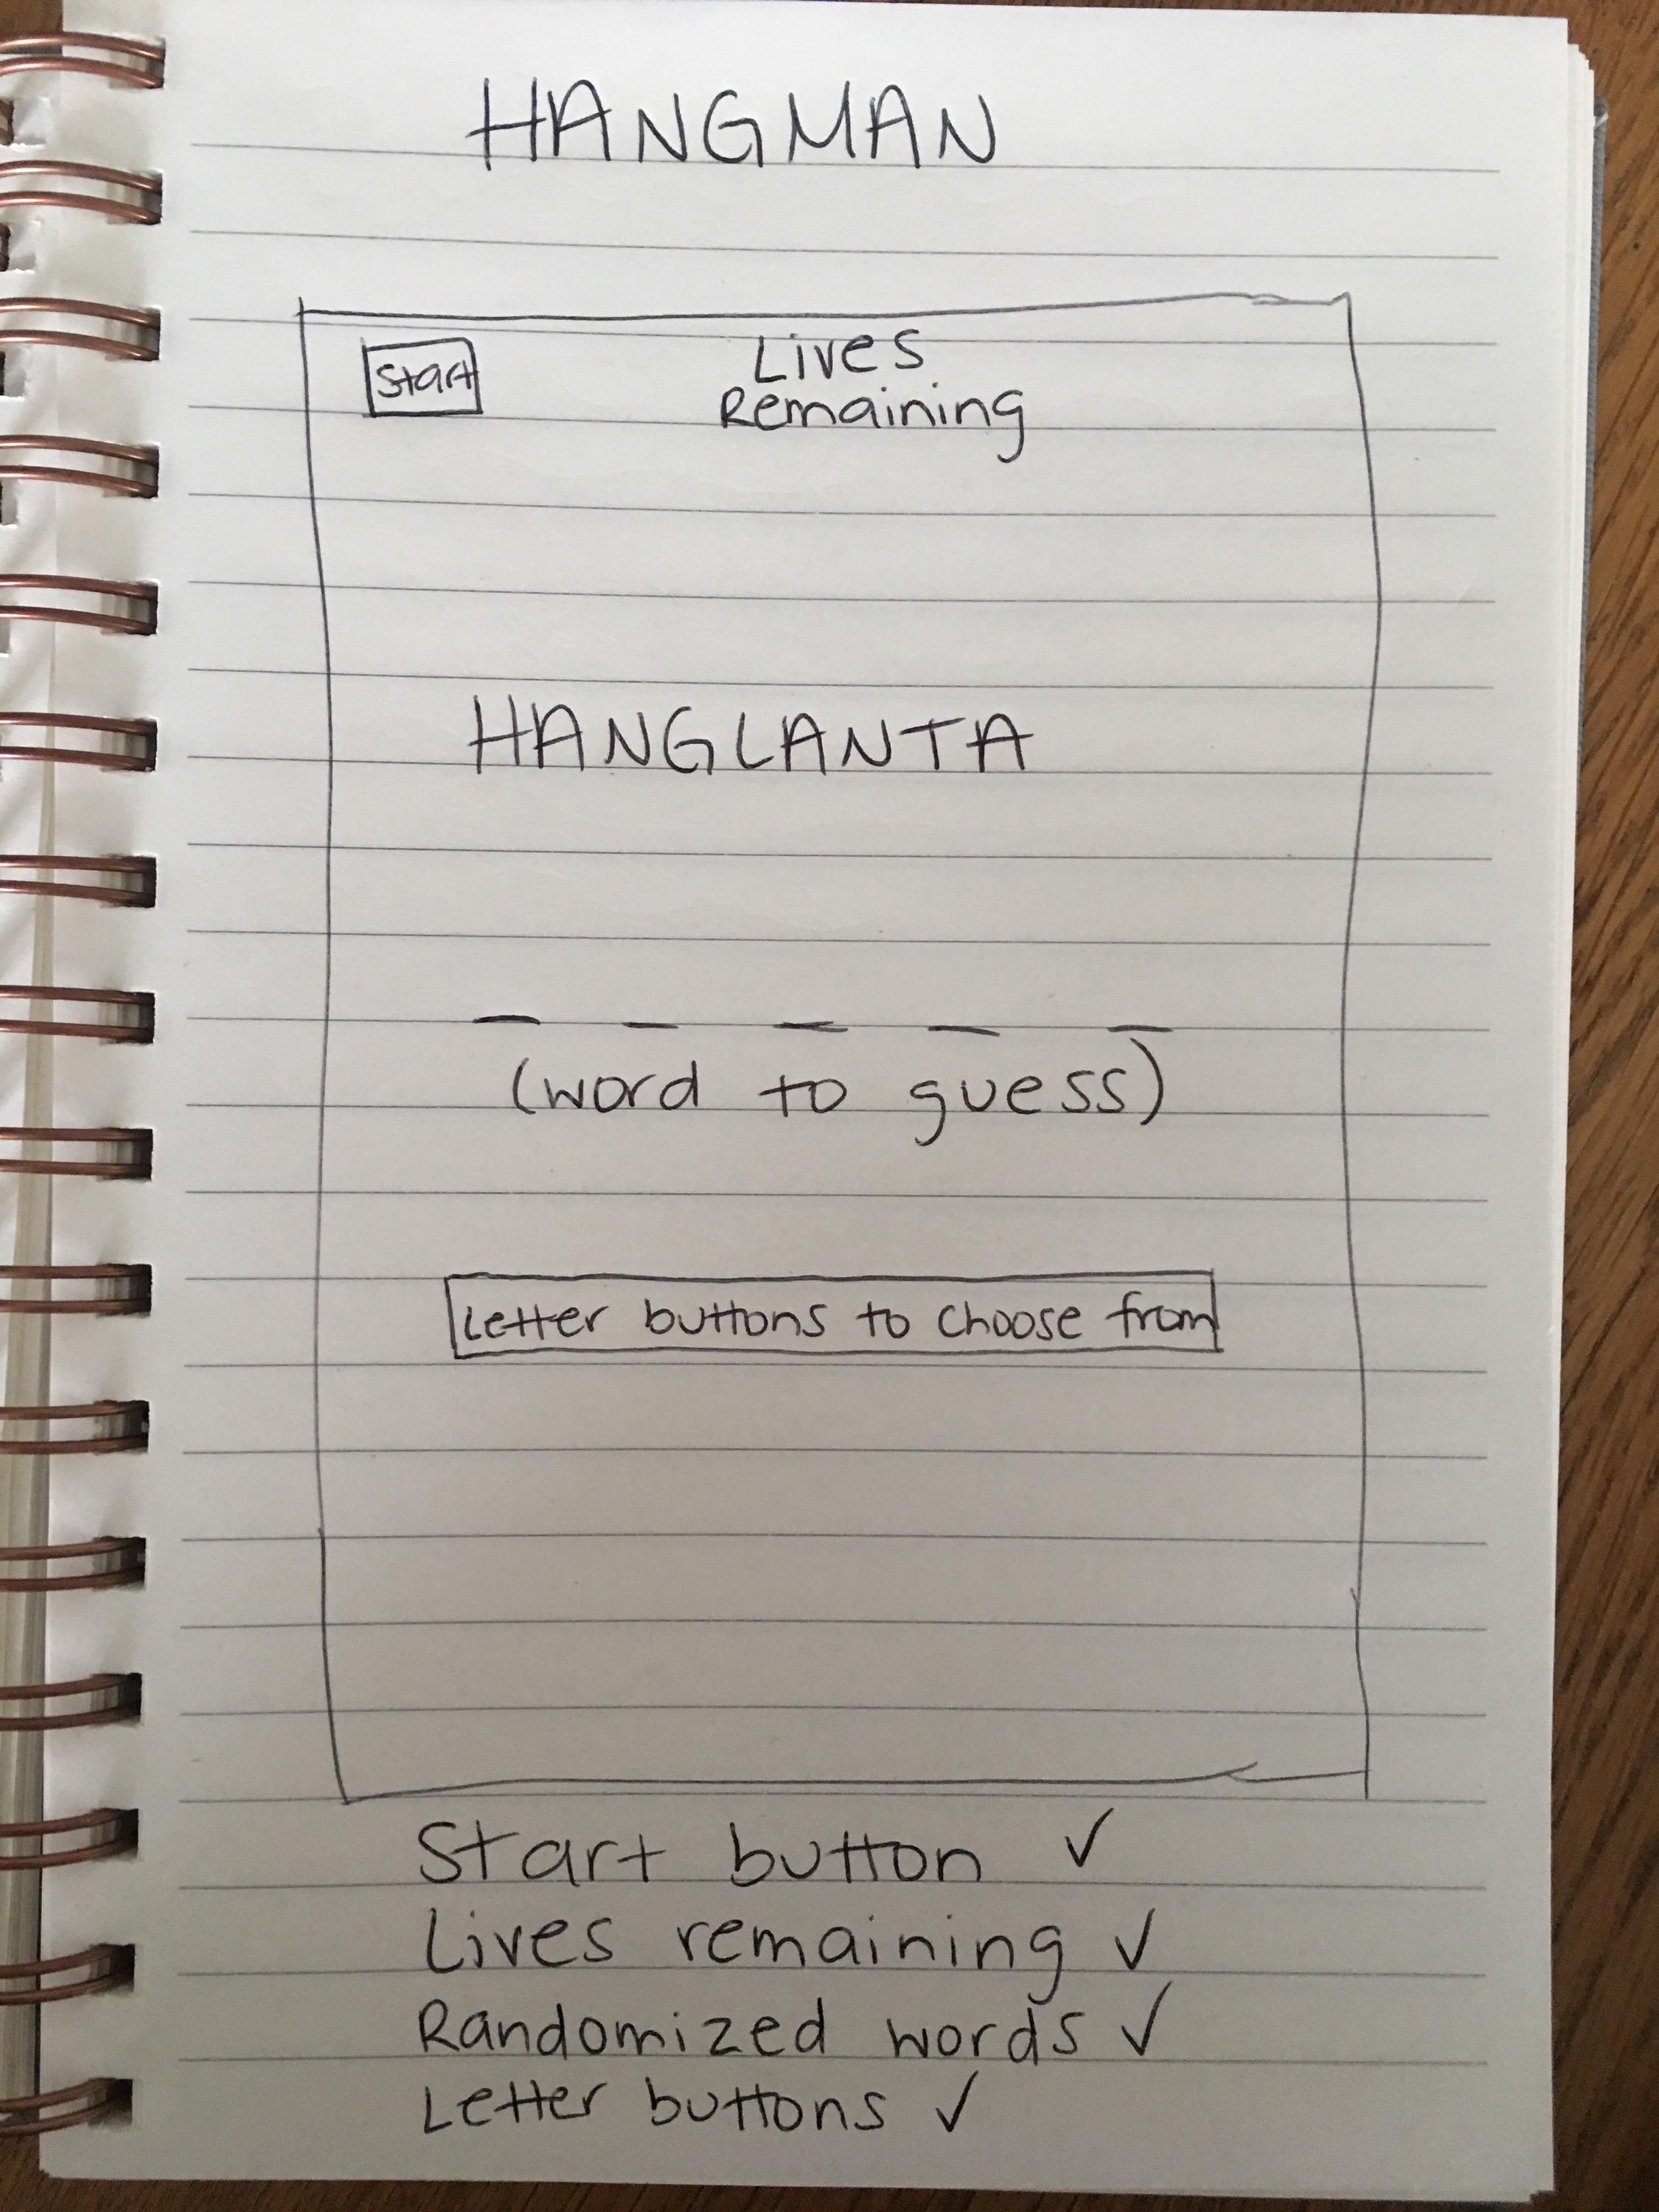 HANGMAN
Start
Lives
Remaining
HANGLANTA
_ _ _ _ _
(word to guess)
Letter buttons to choose from
Start button ✓
Lives remaining ✓
Randomized words ✓
Letter buttons ✓